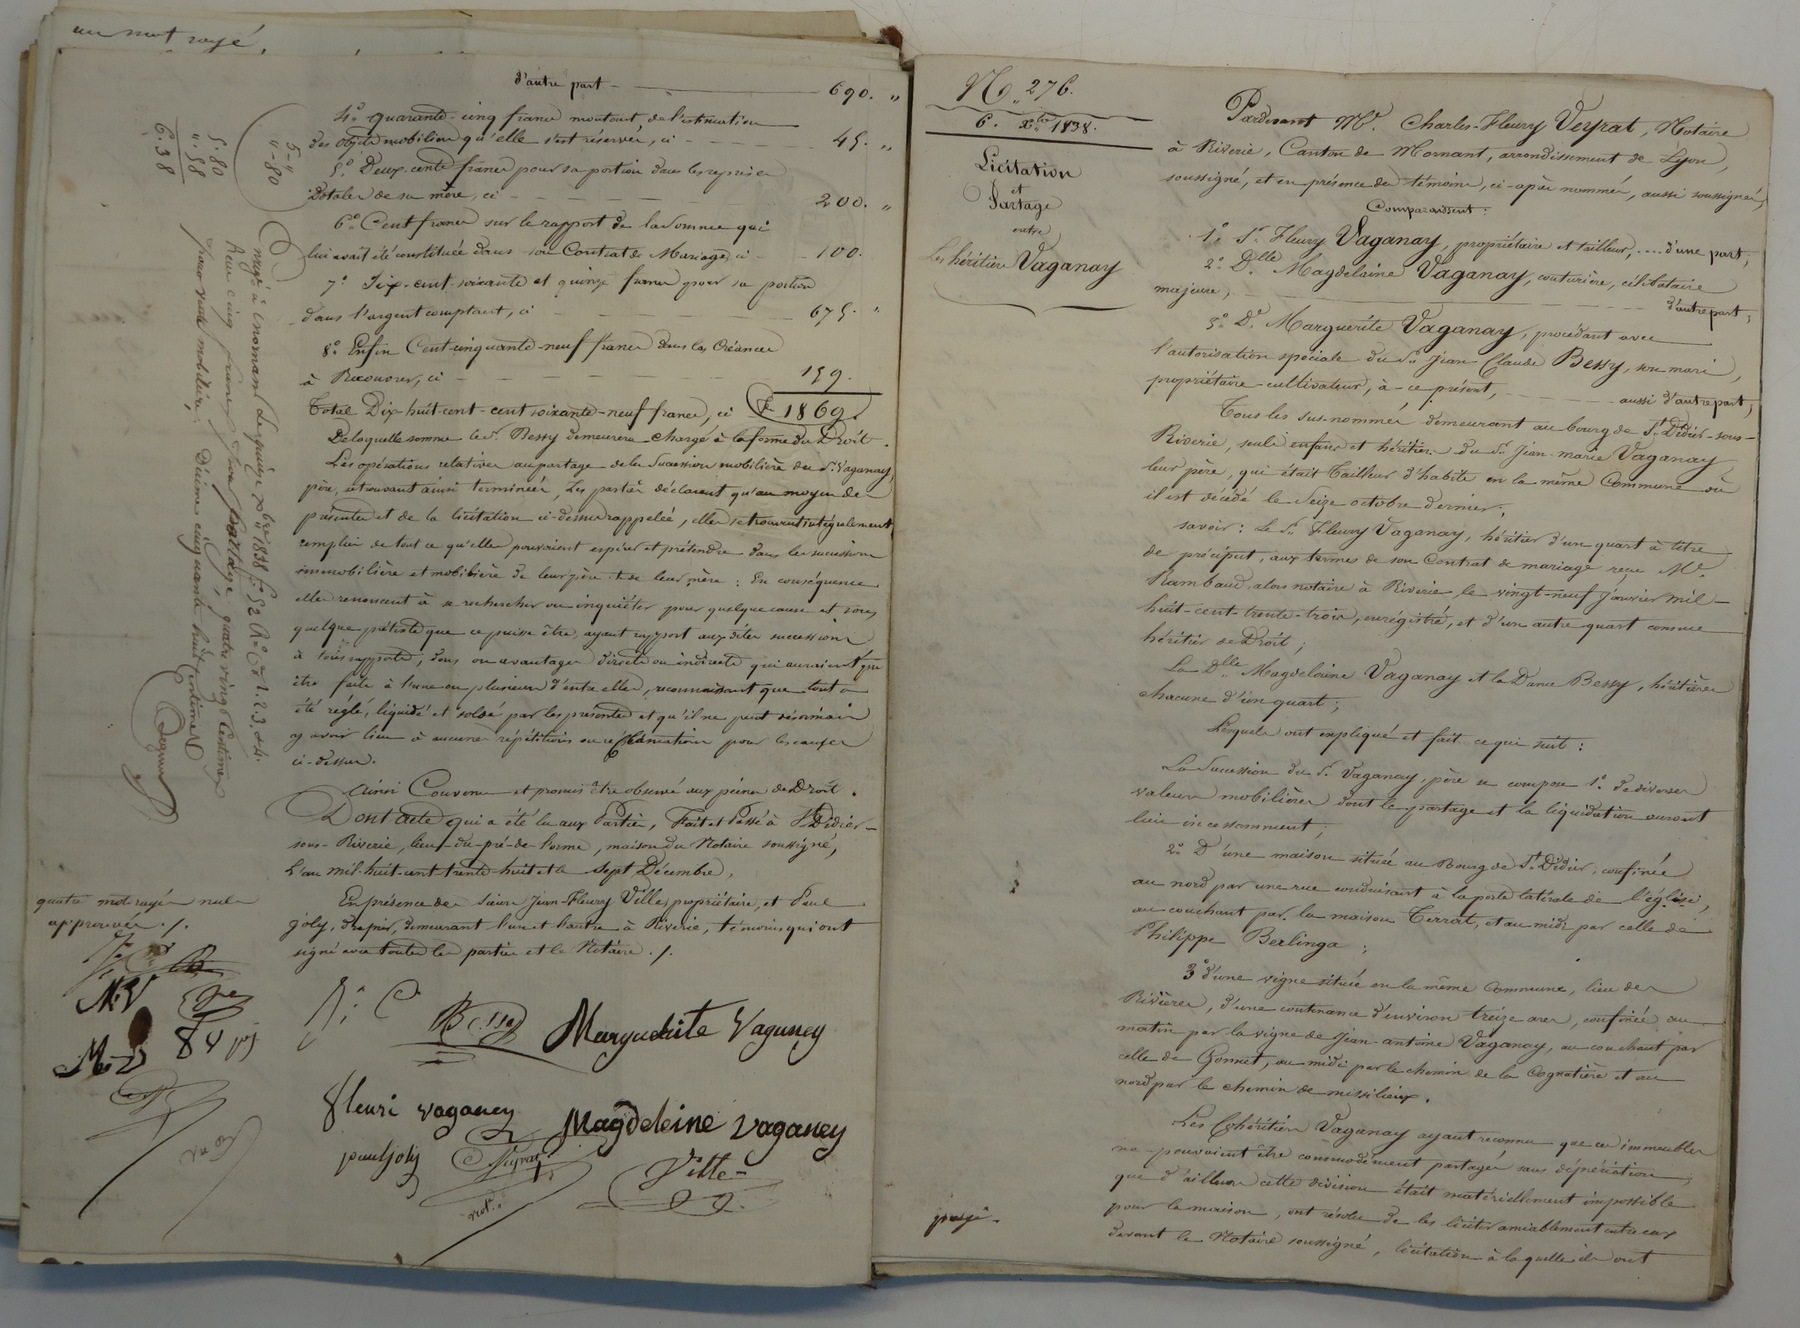 un mot rayé.
d'autre part — 690. "
4° quarante-cinq francs montant de l'estimation
des objets mobiliers qu'elle s'est réservée, ci — 45. "
5° Deux cents francs pour sa portion dans les reprises
dotales de sa mère, ci — 200. "
6° Cent francs sur le rapport de la somme qui
lui avait été constituée dans son Contrat de Mariage, ci — 100.
7° Six-cent-soixante et quinze francs pour sa portion
dans l'argent comptant, ci — 675. "
8° Enfin Cent-cinquante-neuf francs dans les Créances
à Recouvrer, ci — 159.
Total Dix-huit-cent-cent soixante-neuf francs, ci 1869.
De laquelle somme le Sr. Bessy demeurera chargé à la forme du Droit.
Les opérations relatives au partage de la Succession mobilière du Sr. Vaganay
père, se trouvant ainsi terminées, Les parties déclarent qu'au moyen des
présentes et de la licitation ci-dessus rappelée, elles se trouvent intégralement
remplies de tout ce qu'elles pouvaient espérer et prétendre dans les successions
immobilière et mobilière de leur père et de leur mère : En conséquence
elles renoncent à se rechercher ou inquiéter pour quelque cause et sous
quelque prétexte que ce puisse être, ayant rapport aux dites successions
à tous rapports, dons ou avantages directs ou indirects qui auraient pu
être faits à l'une ou plusieurs d'entre elles, reconnaissant que tout a
été réglé, liquidé et soldé par les présentes et qu'il ne peut désormais
y avoir lieu à aucunes répétitions ou réclamations pour les causes
ci-dessus.
Ainsi Convenu et promis être observé aux peines de Droit.
Dont acte qui a été lu aux Parties, Fait et Passé à St Didier-
sous-Riverie, lieu-du-pré-de-l'orme, maison du Notaire soussigné,
L'an mil-huit-cent trente-huit et le sept Décembre,
En présence des sieurs Jean-Fleury Ville, propriétaire, et Paul
Joly, drapier, demeurant l'un et l'autre à Riverie, témoins qui ont
signé avec toutes les parties et le Notaire ./.
quatre mots rayés nuls
approuvés ./.
M V
M V
J. C Bessy Marguerite Vaganey
fleuri vaganey Magdeleine Vaganey
paul joly Veyrat Ville
not.
5-"
"-80
5.80
".58
6.38
Enregistré à Mornant Le quinze Xbre 1838 f° 52 R° Ces 1.2.3. et 4.
Reçu cinq francs pour partage, quatre vingt Centimes
pour vente mobilière, Décime cinquante huit centimes
N° 276.
6. Xbre 1838.
Licitation
et
Partage
entre
Les héritiers Vaganay
Pardevant Me. Charles-Fleury Veyrat, Notaire
à Riverie, Canton de Mornant, arrondissement de Lyon,
soussigné, et en présence des témoins, ci-après nommés, aussi soussignés,
Comparaissent :
1° Sr. Fleury Vaganay, propriétaire et tailleur, .... d'une part,
2° Dlle Magdeleine Vaganay, couturière, célibataire
majeure, — d'autre part,
3° De. Marguerite Vaganay, procédant avec
l'autorisation spéciale du Sr. Jean Claude Bessy, son mari,
propriétaire-cultivateur, à-ce présent, — aussi d'autre part,
Tous les sus-nommés demeurant au bourg de St. Didier-sous-
Riverie, seuls enfans et héritiers du Sr. Jean-marie Vaganay
leur père, qui était Tailleur d'habits en la même Commune où
il est décédé le Seize octobre dernier,
savoir : Le Sr. Fleury Vaganay, héritier d'un quart à titre
de préciput, aux termes de son Contrat de mariage reçu Me.
Rambaud, alors notaire à Riverie, le vingt-neuf Janvier mil-
huit-cent-trente-trois, enregistré, et d'un autre quart comme
héritier de Droit ;
La Dlle. Magdeleine Vaganay et la Dame Bessy, héritières
chacune d'un quart ;
Lesquels ont expliqué et fait ce qui suit :
La Succession du Sr. Vaganay, père se compose 1° de diverses
valeurs mobilières dont le partage et la liquidation auront
lieu incessamment ;
2° D'une maison située au Bourg de St. Didier, confinée
au nord par une rue conduisant à la porte latérale de l'église,
au couchant par la maison Terrat, et au midi par celle de
Philippe Berlinga ;
3° d'une vigne située en la même Commune, lieu des
Rivières, d'une contenance d'environ treize ares, confinée au
matin par la vigne de Jean-antoine Vaganay, au couchant par
celle de Gonnet, au midi par le chemin de la Cognatière et au
nord par le chemin de missilieux.
Les Cohéritiers Vaganay ayant reconnu que ces immeubles
ne pouvaient être commodément partagés sans dépréciation,
que d'ailleurs cette division était matériellement impossible
pour la maison, ont résolu de les liciter amiablement entre eux
devant le Notaire soussigné, licitation à laquelle ils ont